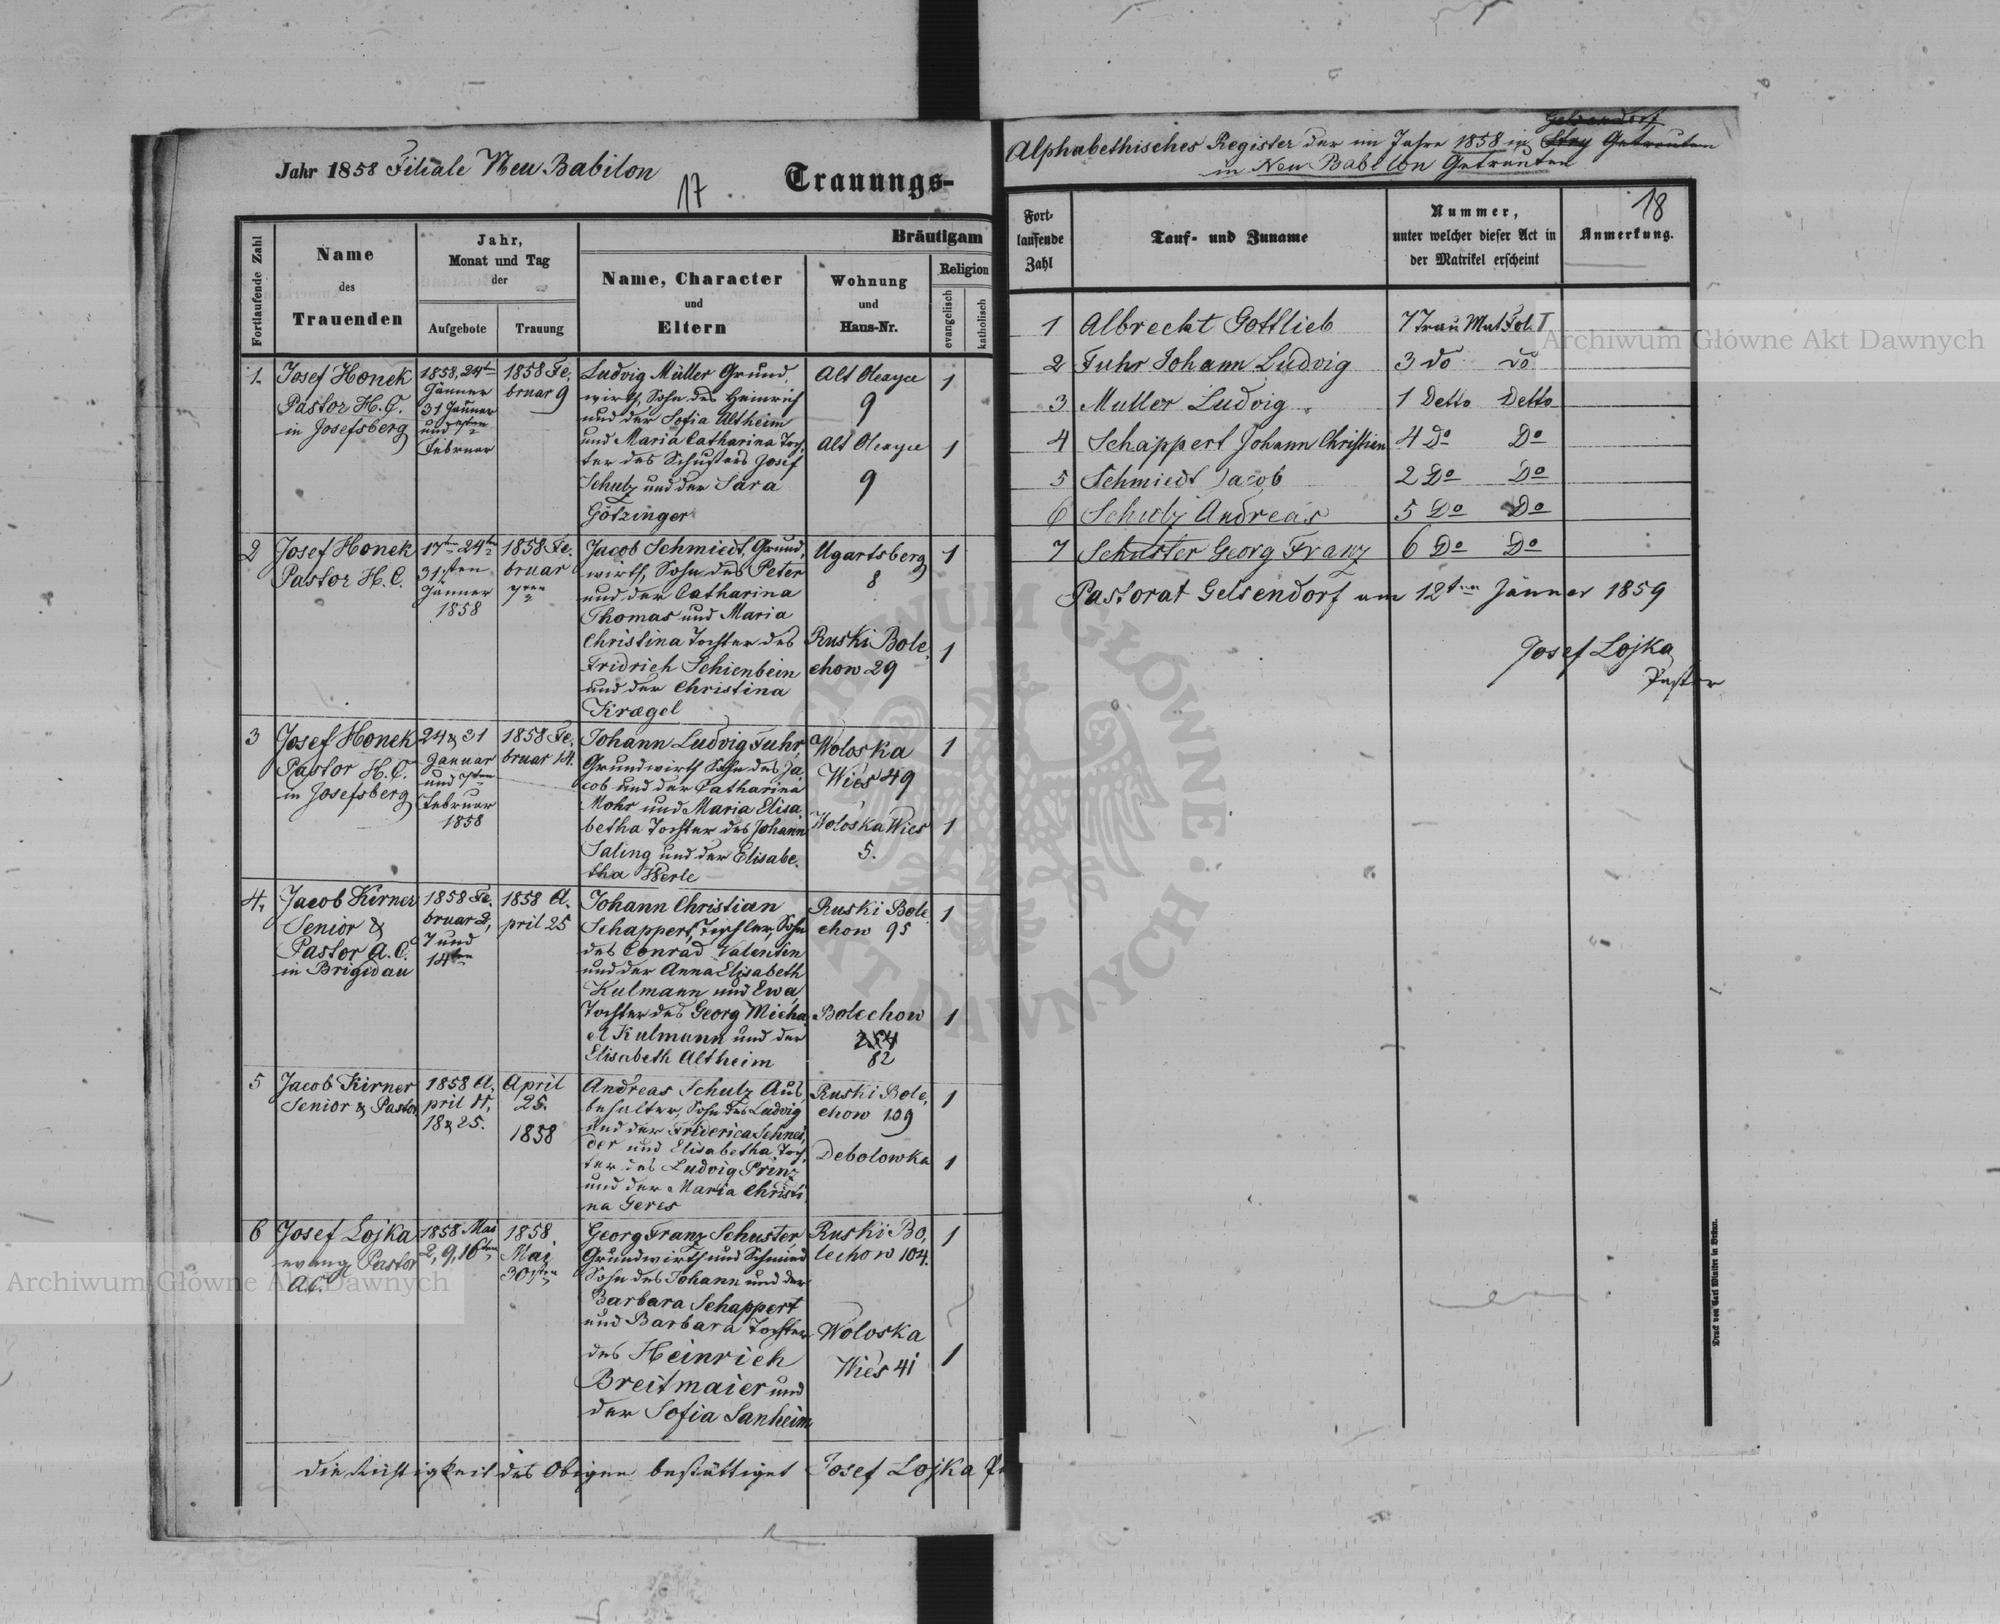 Jahr 1858 Filiale Neu Babilon
17
Trauungs-
Fortlaufende Zahl
Name
des
Trauenden
Jahr,
Monat und Tag
der
Aufgebote
Trauung
Bräutigam
Name, Character
und
Eltern
Wohnung
und
Haus-Nr.
Religion
evangelisch
katholisch
1.
Josef Honek
Pastor H.C.
in Josefsberg
1858, 24ten
Jänner
31 Jänner
und 7ten
Februar
1858 Fe,
bruar 9
Ludvig Müller Grund,
wirth, Sohn des Heinrich
und der Sofia Altheim
und Maria Catharina Toch,
ter des Schusters Josef
Schulz und der Sara
Götzinger
Alt Olexyce
9
Alt Olexyce
9
1
1
2
Josef Honek
Pastor H.C.
17ten 24ten
31sten
Jänner
1858
1858 Fe,
bruar
Jacob Schmiedt, Grund,
wirth, Sohn des Peter
und der Catharina
Thomas und Maria
Christina Tochter des
Fridrich Schienbein
und der Christina
Kragel
Ugartsberg
8
Ruski Bole,
chow 29
1
1
3
Josef Honek
Pastor H.C.
in Josefsberg
24 & 31
Januar
und 7ten
Februar
1858
1858 Fe,
bruar 14.
Johann Ludvig Fuhr,
Grundwirth Sohn des Ja,
cob und der Catharina
Mohr und Maria Elisa,
betha Tochter des Johann
Saling und der Elisabe,
tha Werle
Woloska
Wies 49
Woloska Wies
5.
1
1
4.
Jacob Kirner
Senior &
Pastor A.C.
in Brigidau
1858 Fe,
bruar 2,
7 und
14ten
1858 A,
pril 25
Johann Christian
Schappert, Tischler, Sohn
des Conrad Valentin
und der Anna Elisabeth
Kulmann und Ewa,
Tochter des Georg Micha,
el Kulmann und der
Elisabeth Altheim
Ruski Bole,
chow 95
Bolechow
254
82
1
1
5
Jacob Kirner
Senior & Pastor
1858 A,
pril 11,
18 & 25.
April
25.
1858
Andreas Schulz Aus,
behalter, Sohn des Ludvig
und der Friderica Schnei,
der und Elisabetha Toch,
ter des Ludvig Prinz
und der Maria Christi
na Geres
Ruski Bole,
chow 109
Debolowka
1
1
6
Josef Lojka
evang Pastor
A.C.
1858 Mai
2, 9, 16ten
1858
Mai
30sten
Georg Franz Schuster,
Grundwirth und Schmied
Sohn des Johann und der
Barbara Schappert
und Barbara Tochter
des Heinrich
Breitmaier und
der Sofia Sanheim
Ruski Bo,
lechow 104.
Woloska
Wies 41
1
1
die Richtigkeit des Obigen bestättiget Josef Lojka
Gelsendorf
Alphabethisches Register der im Jahre 1858 in Stry Getrauten
in Neu Babilon Getrauten
18
Fort-
laufende
Zahl
Tauf- und Zuname
Nummer,
unter welcher dieser Act in
der Matrikel erscheint
Anmerkung.
1 Albrecht Gottlieb 7 Trau Mat Fol. I
2 Fuhr Johann Ludvig 3 do do
3 Muller Ludvig 1 Detto Detto
4 Schappert Johann Christian 4 Do Do
5 Schmiedt Jacob 2 Do Do
6 Schulz Andreas 5 Do Do
7 Schuster Georg Franz 6 Do Do
Pastorat Gelsendorf am 12ten Jänner 1859
Josef Lojka
Pastor
Druck von Carl Winiker in Brünn.
Archiwum Główne Akt Dawnych
Archiwum Główne Akt Dawnych
ARCHIWUM GŁÓWNE · AKT DAWNYCH ·